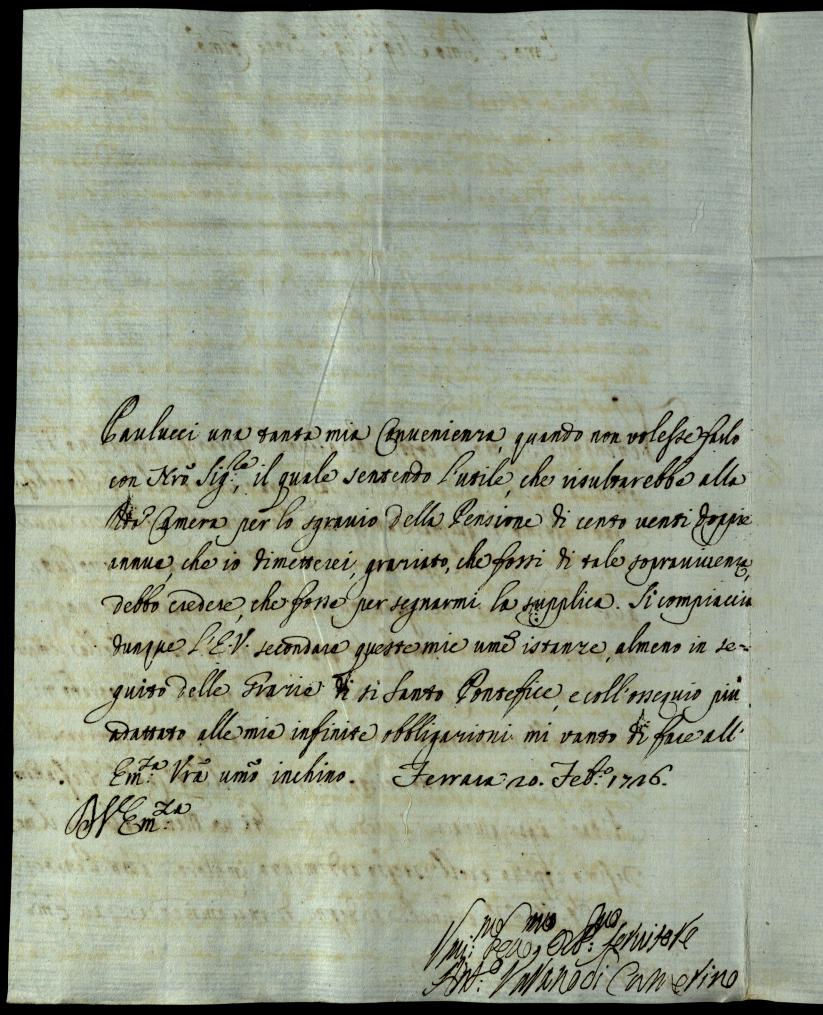 Paulucci una tanta mia Convenienza, quando non volesse farlo
con Nrõ Sig.re, il quale sentendo l'utile, che risultarebbe alla
Camera per lo sgravio della Pensione di cento venti doppie
annue, che io dimetterei, graziato, che fossi di tale sopravivenza,
debbo credere, che fosse per segnarmi la supplica. Si compiaccia
dunque l'E.V. secondare queste mie ume istanze, almeno in se=
guito delle Grazie di si Santo Pontefice, e coll'ossequio più
adattato alle mie infinite obbligazioni mi vanto di fare all'
Em.za Vrã umo inchino. Ferrara 20. Feb.o 1726.
Em.za
Um.mo Dev.mo Obl.mo Servitore
Ant.o Varano di Camerino